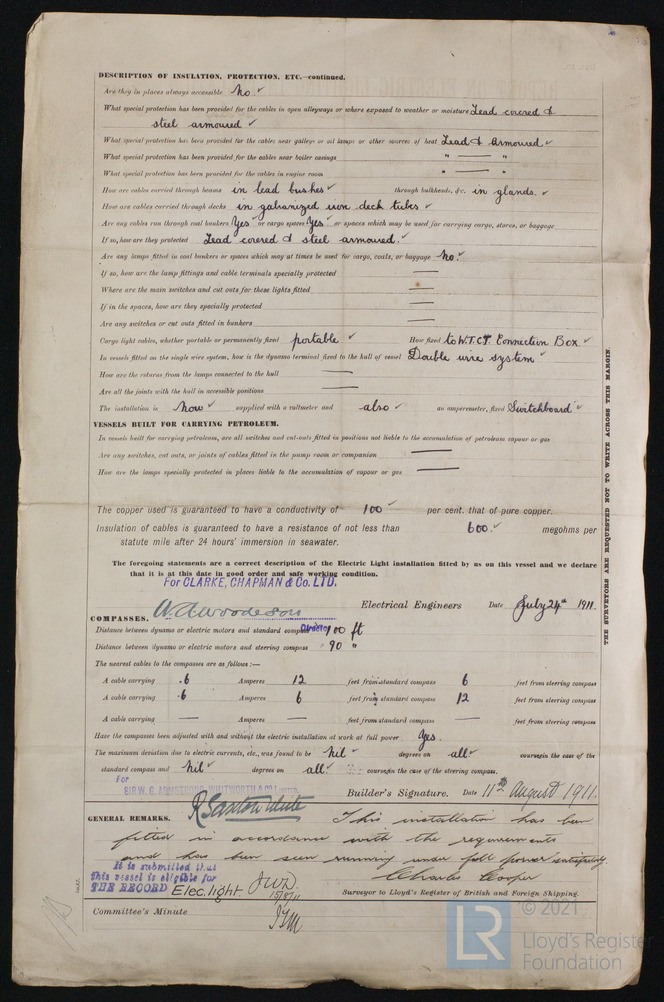 DESCRIPTION OF INSULATION, PROTECTION, ETC.—continued.
Are they in places always accessible No. ✓
What special protection has been provided for the cables in open alleyways or where exposed to weather or moisture Lead covered &
steel armoured ✓
What special protection has been provided for the cables near galleys or oil lamps or other sources of heat Lead & Armoured ✓
What special protection has been provided for the cables near boiler casings " — "
What special protection has been provided for the cables in engine room " — "
How are cables carried through beams in lead bushes ✓ through bulkheads, &c. in glands. ✓
How are cables carried through decks in galvanized iron deck tubes ✓
Are any cables run through coal bunkers Yes ✓ or cargo spaces Yes ✓ or spaces which may be used for carrying cargo, stores, or baggage
If so, how are they protected Lead covered & steel armoured. ✓
Are any lamps fitted in coal bunkers or spaces which may at times be used for cargo, coals, or baggage No. ✓
If so, how are the lamp fittings and cable terminals specially protected —
Where are the main switches and cut outs for these lights fitted —
If in the spaces, how are they specially protected —
Are any switches or cut outs fitted in bunkers —
Cargo light cables, whether portable or permanently fixed portable ✓ How fixed to W.T.C.I. Connection Box ✓
In vessels fitted on the single wire system, how is the dynamo terminal fixed to the hull of vessel Double wire system ✓
How are the returns from the lamps connected to the hull —
Are all the joints with the hull in accessible positions —
The installation is Now ✓ supplied with a voltmeter and also ✓ an amperemeter, fixed Switchboard ✓
VESSELS BUILT FOR CARRYING PETROLEUM.
In vessels built for carrying petroleum, are all switches and cut-outs fitted in positions not liable to the accumulation of petroleum vapour or gas
Are any switches, cut outs, or joints of cables fitted in the pump room or companion —
How are the lamps specially protected in places liable to the accumulation of vapour or gas —
The copper used is guaranteed to have a conductivity of 100 ✓ per cent. that of pure copper.
Insulation of cables is guaranteed to have a resistance of not less than 600. ✓ megohms per
statute mile after 24 hours' immersion in seawater.
The foregoing statements are a correct description of the Electric Light installation fitted by us on this vessel and we declare
that it is at this date in good order and safe working condition.
For CLARKE, CHAPMAN & Co. LTD.
W. A. Woodeson Electrical Engineers Date July 24th 1911.
Director
COMPASSES.
Distance between dynamo or electric motors and standard compass 100 ft
Distance between dynamo or electric motors and steering compass 90 "
The nearest cables to the compasses are as follows:—
A cable carrying .6 Amperes 12 feet from standard compass 6 feet from steering compass
A cable carrying .6 Amperes 6 feet from standard compass 12 feet from steering compass
A cable carrying — Amperes — feet from standard compass — feet from steering compass
Have the compasses been adjusted with and without the electric installation at work at full power Yes.
The maximum deviation due to electric currents, etc., was found to be Nil ✓ degrees on all ✓ course in the case of the
standard compass and Nil ✓ degrees on all ✓ course in the case of the steering compass.
For
SIR W. G. ARMSTRONG, WHITWORTH & CO LIMITED.
R Saxton White Builder's Signature. Date 11th August 1911.
GENERAL REMARKS. This installation has been
fitted in accordance with the requirements
and has been seen running under full power satisfactorily.
It is submitted that
this vessel is eligible for
THE RECORD Elec. light. JWD 15/8/11
Charles Cooper
Surveyor to Lloyd's Register of British and Foreign Shipping.
Committee's Minute
THE SURVEYORS ARE REQUESTED NOT TO WRITE ACROSS THIS MARGIN.
© 2021
LR
Lloyd's Register
Foundation